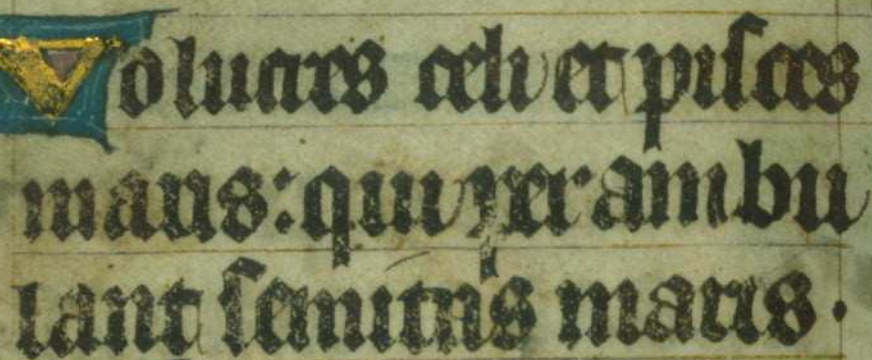 Volucres celi et pisces
maris: qui perambu
lant semitas maris.